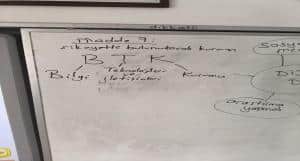 dikkat
madde 7:
şikayette bulunulacak kurum
B T K
Bilgi Teknolojileri ve İletişimleri Kurumu
Sosya
Di
Araştırma
yapmak